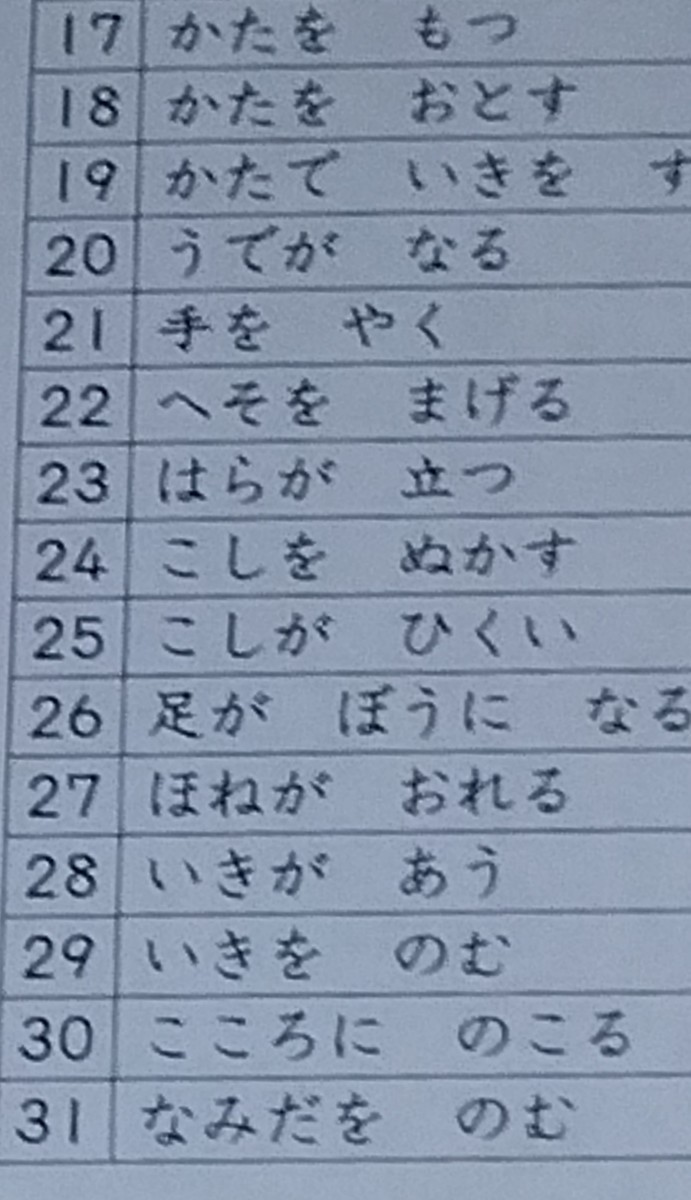 17 かたを もつ
18 かたを おとす
19 かたで いきを す
20 うでが なる
21 手を やく
22 へそを まげる
23 はらが 立つ
24 こしを ぬかす
25 こしが ひくい
26 足が ぼうに なる
27 ほねが おれる
28 いきが あう
29 いきを のむ
30 こころに のこる
31 なみだを のむ